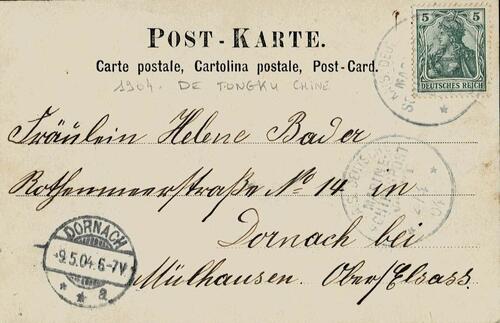 POST-KARTE.
Carte postale, Cartolina postale, Post-Card.
1904. DE TONGKU CHINE
5 5
DEUTSCHES REICH
Fräulein Helene Bader
Rothenmeerstraße No 14 in
Dornach bei
Mülhausen. Ober/Elsass.
DORNACH
9.5.04.6-7V
a